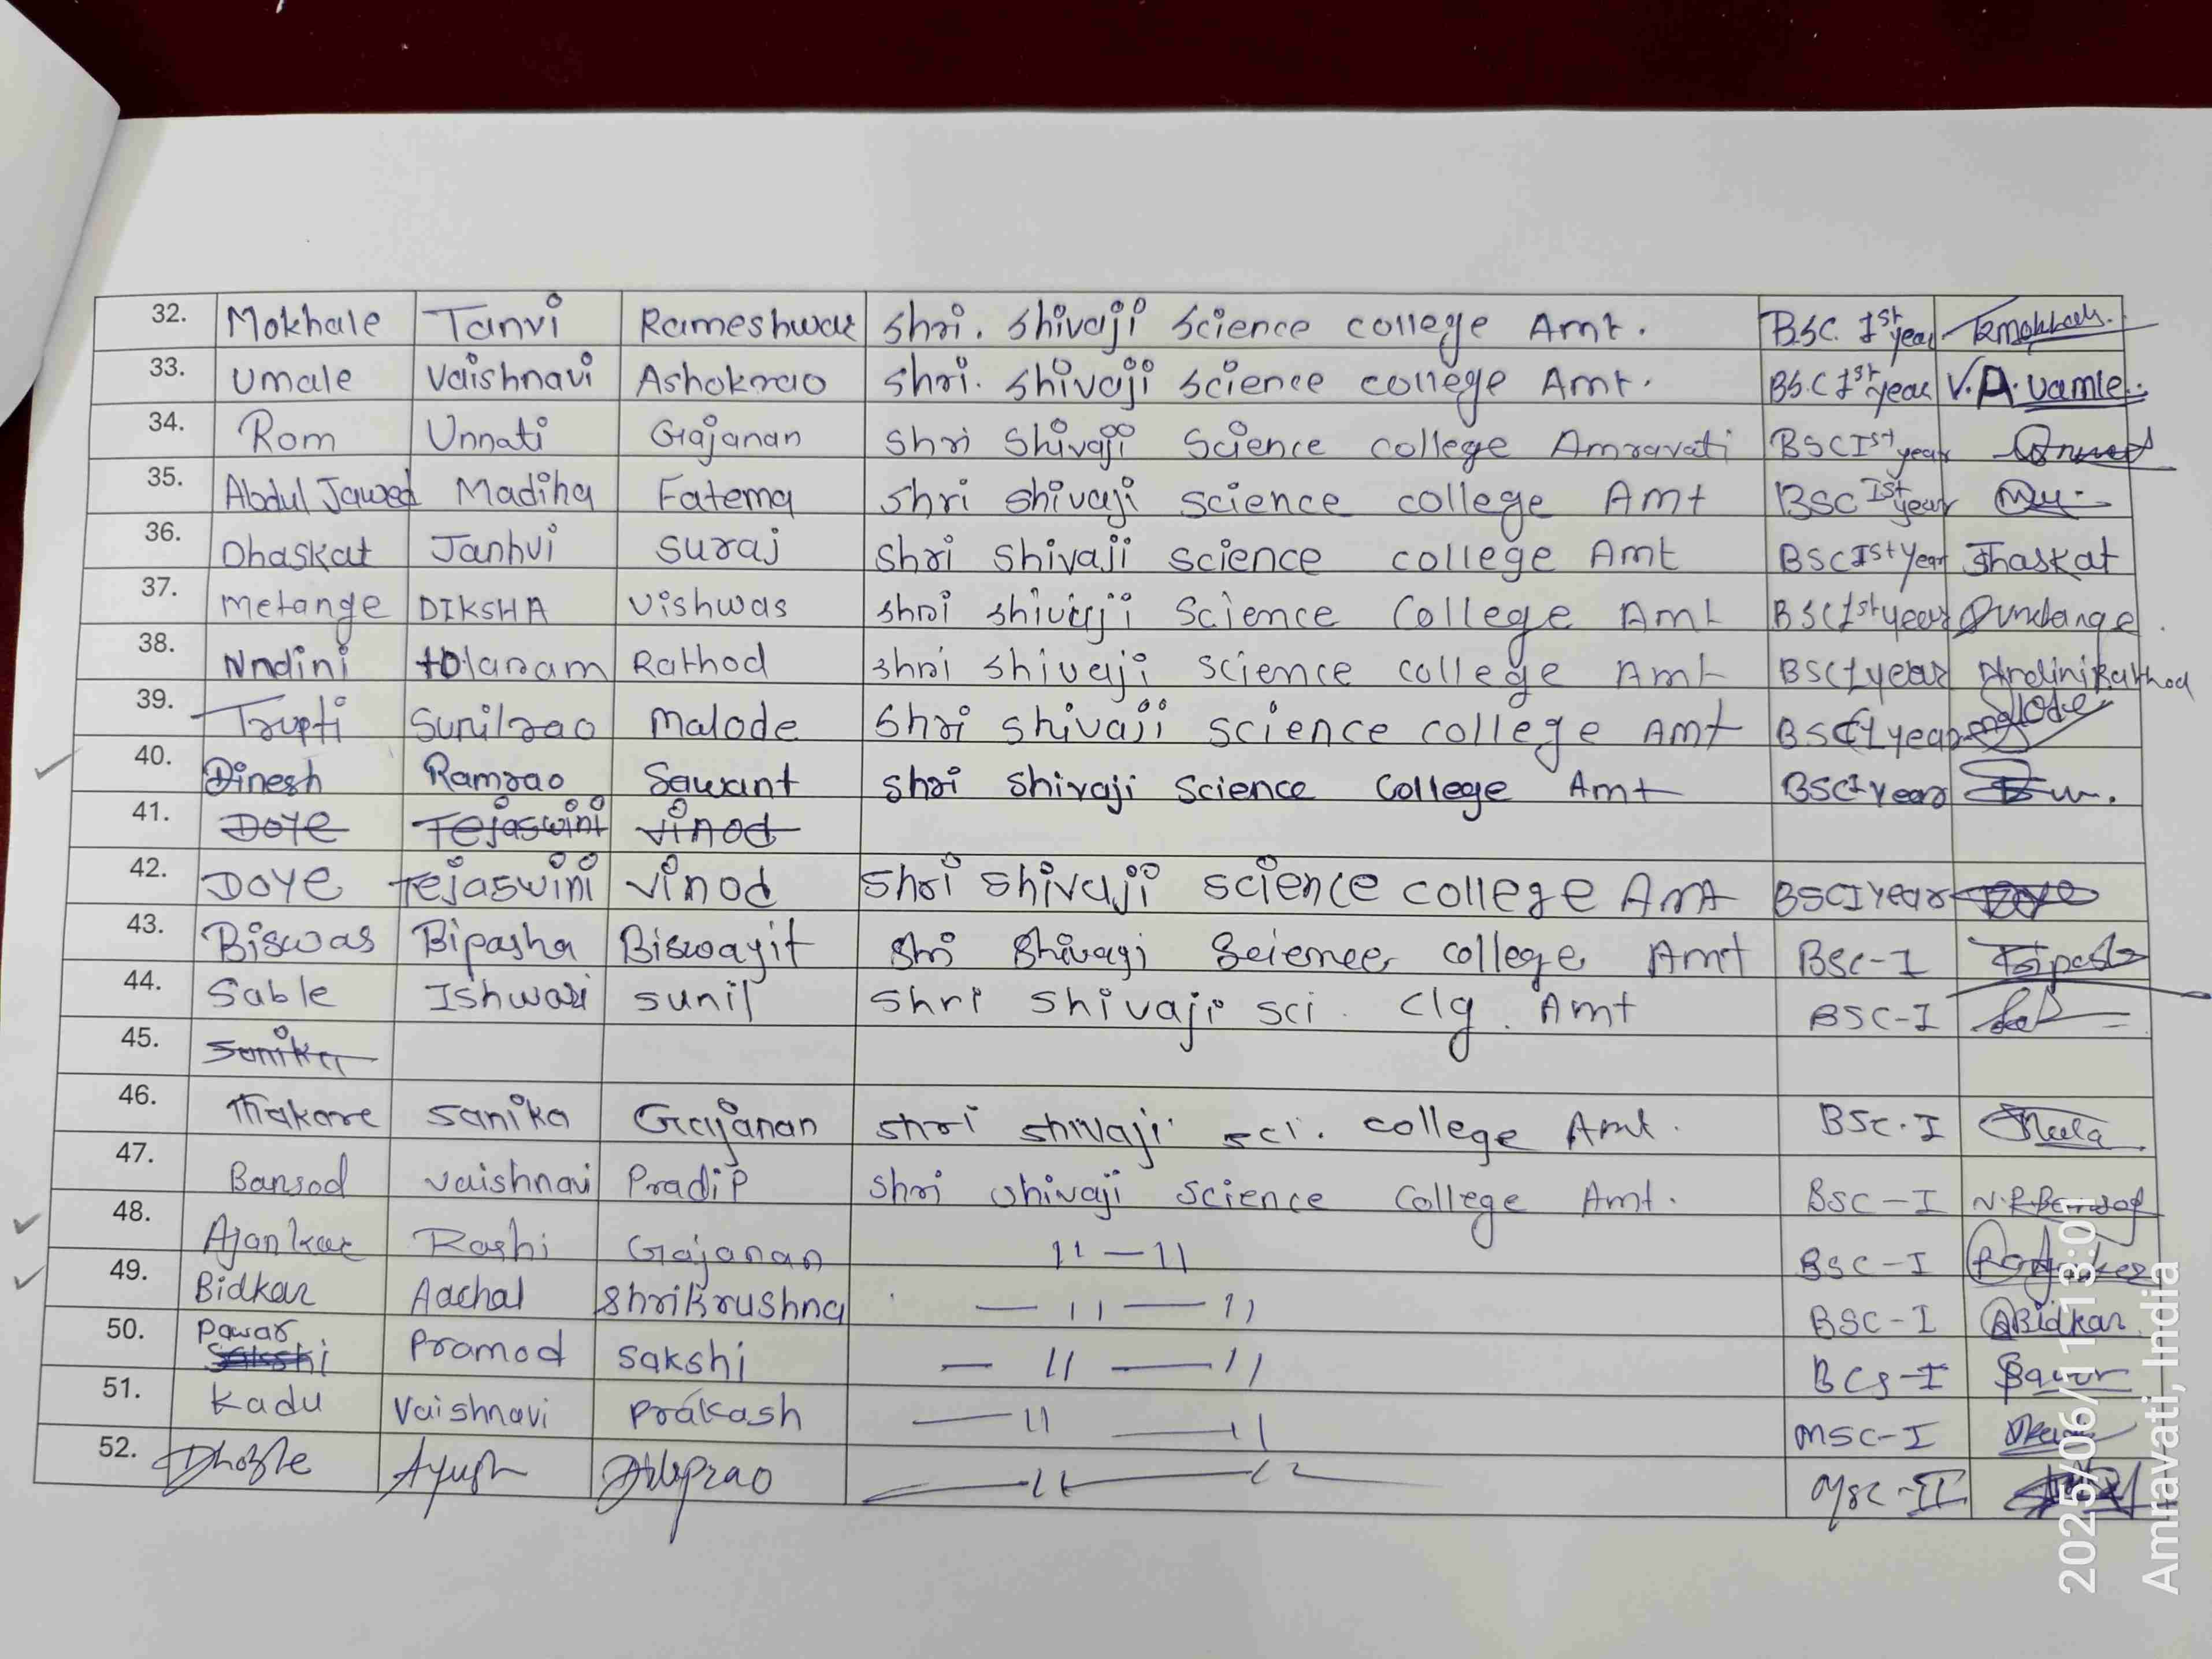 32. Mokhale Tanvi Rameshwar Shri. Shivaji Science college Amt. BSC. 1st year
33. Umale Vaishnavi Ashokrao Shri. Shivaji Science college Amt. BS.C 1st year V.A. uamle.
34. Rom Unnati Gajanan Shri Shivaji Science college Amravati BSC Ist year
35. Abdul Jawed Madiha Fatema Shri Shivaji science college Amt BSC Ist year
36. Dhaskat Janhvi suraj Shri Shivaji science college Amt BSC Ist Year Jhaskat
37. Metange DIKSHA Vishwas shri shivaji Science College Amt BSC 1st year
38. Nndini tolaram Rathod shri shivaji science college Amt BSC 1 year Nndini Rathod
39. Trupti Sunilrao Malode Shri shivaji science college Amt BSC 1 year
40. Dinesh Ramrao Sawant Shri Shivaji Science College Amt BSC I year
41. Doye Tejaswini Vinod
42. DOYE Tejaswini Vinod Shri Shivaji science college Amt BSC I Year
43. Biswas Bipasha Biswayit Shri Shivagi Science college Amt BSC-I Bipasha
44. Sable Ishwari sunil Shri Shivaji sci. clg. Amt BSC-I
45. Sanika
46. Thakare Sanika Gajanan Shri Shivaji sci. college Amt. BSC.I
47. Bansod Vaishnavi Pradip Shri Shivaji Science College Amt. BSC-I
48. Ajankar Rashi Gajanan 11 — 11 BSC-I
49. Bidkar Aachal Shrikrushna — 11 — 11 BSC-I ABidkar
50. Pawar Sakshi Pramod Sakshi — 11 — 11 BCS-I
51. Kadu Vaishnavi Prakash — 11 — 11 MSC-I
52. Dhoble Ayush Diliprao — 11 — 11 MSC-II
2025/06/11 13:01
Amravati, India